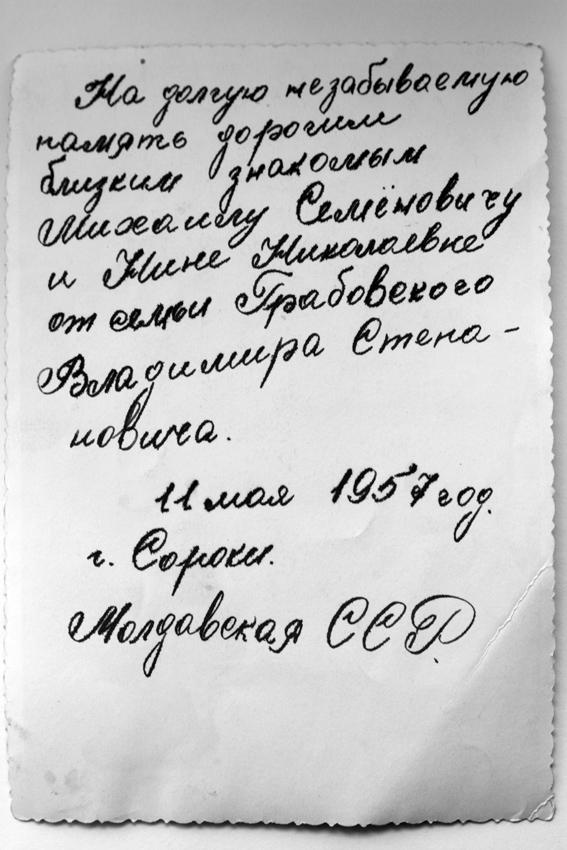 На долгую незабываемую
память дорогим
близким знакомым
Михаилу Семёновичу
и Нине Николаевне
от семьи Грабовского
Владимира Степа-
новича.
11 мая 1957 год.
г. Сороки.
Молдавская ССР.